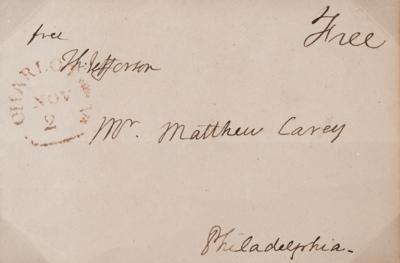 free
Free
Th: Jefferson
CHARLO
NOV
2
Mr. Matthew Carey
Philadelphia.